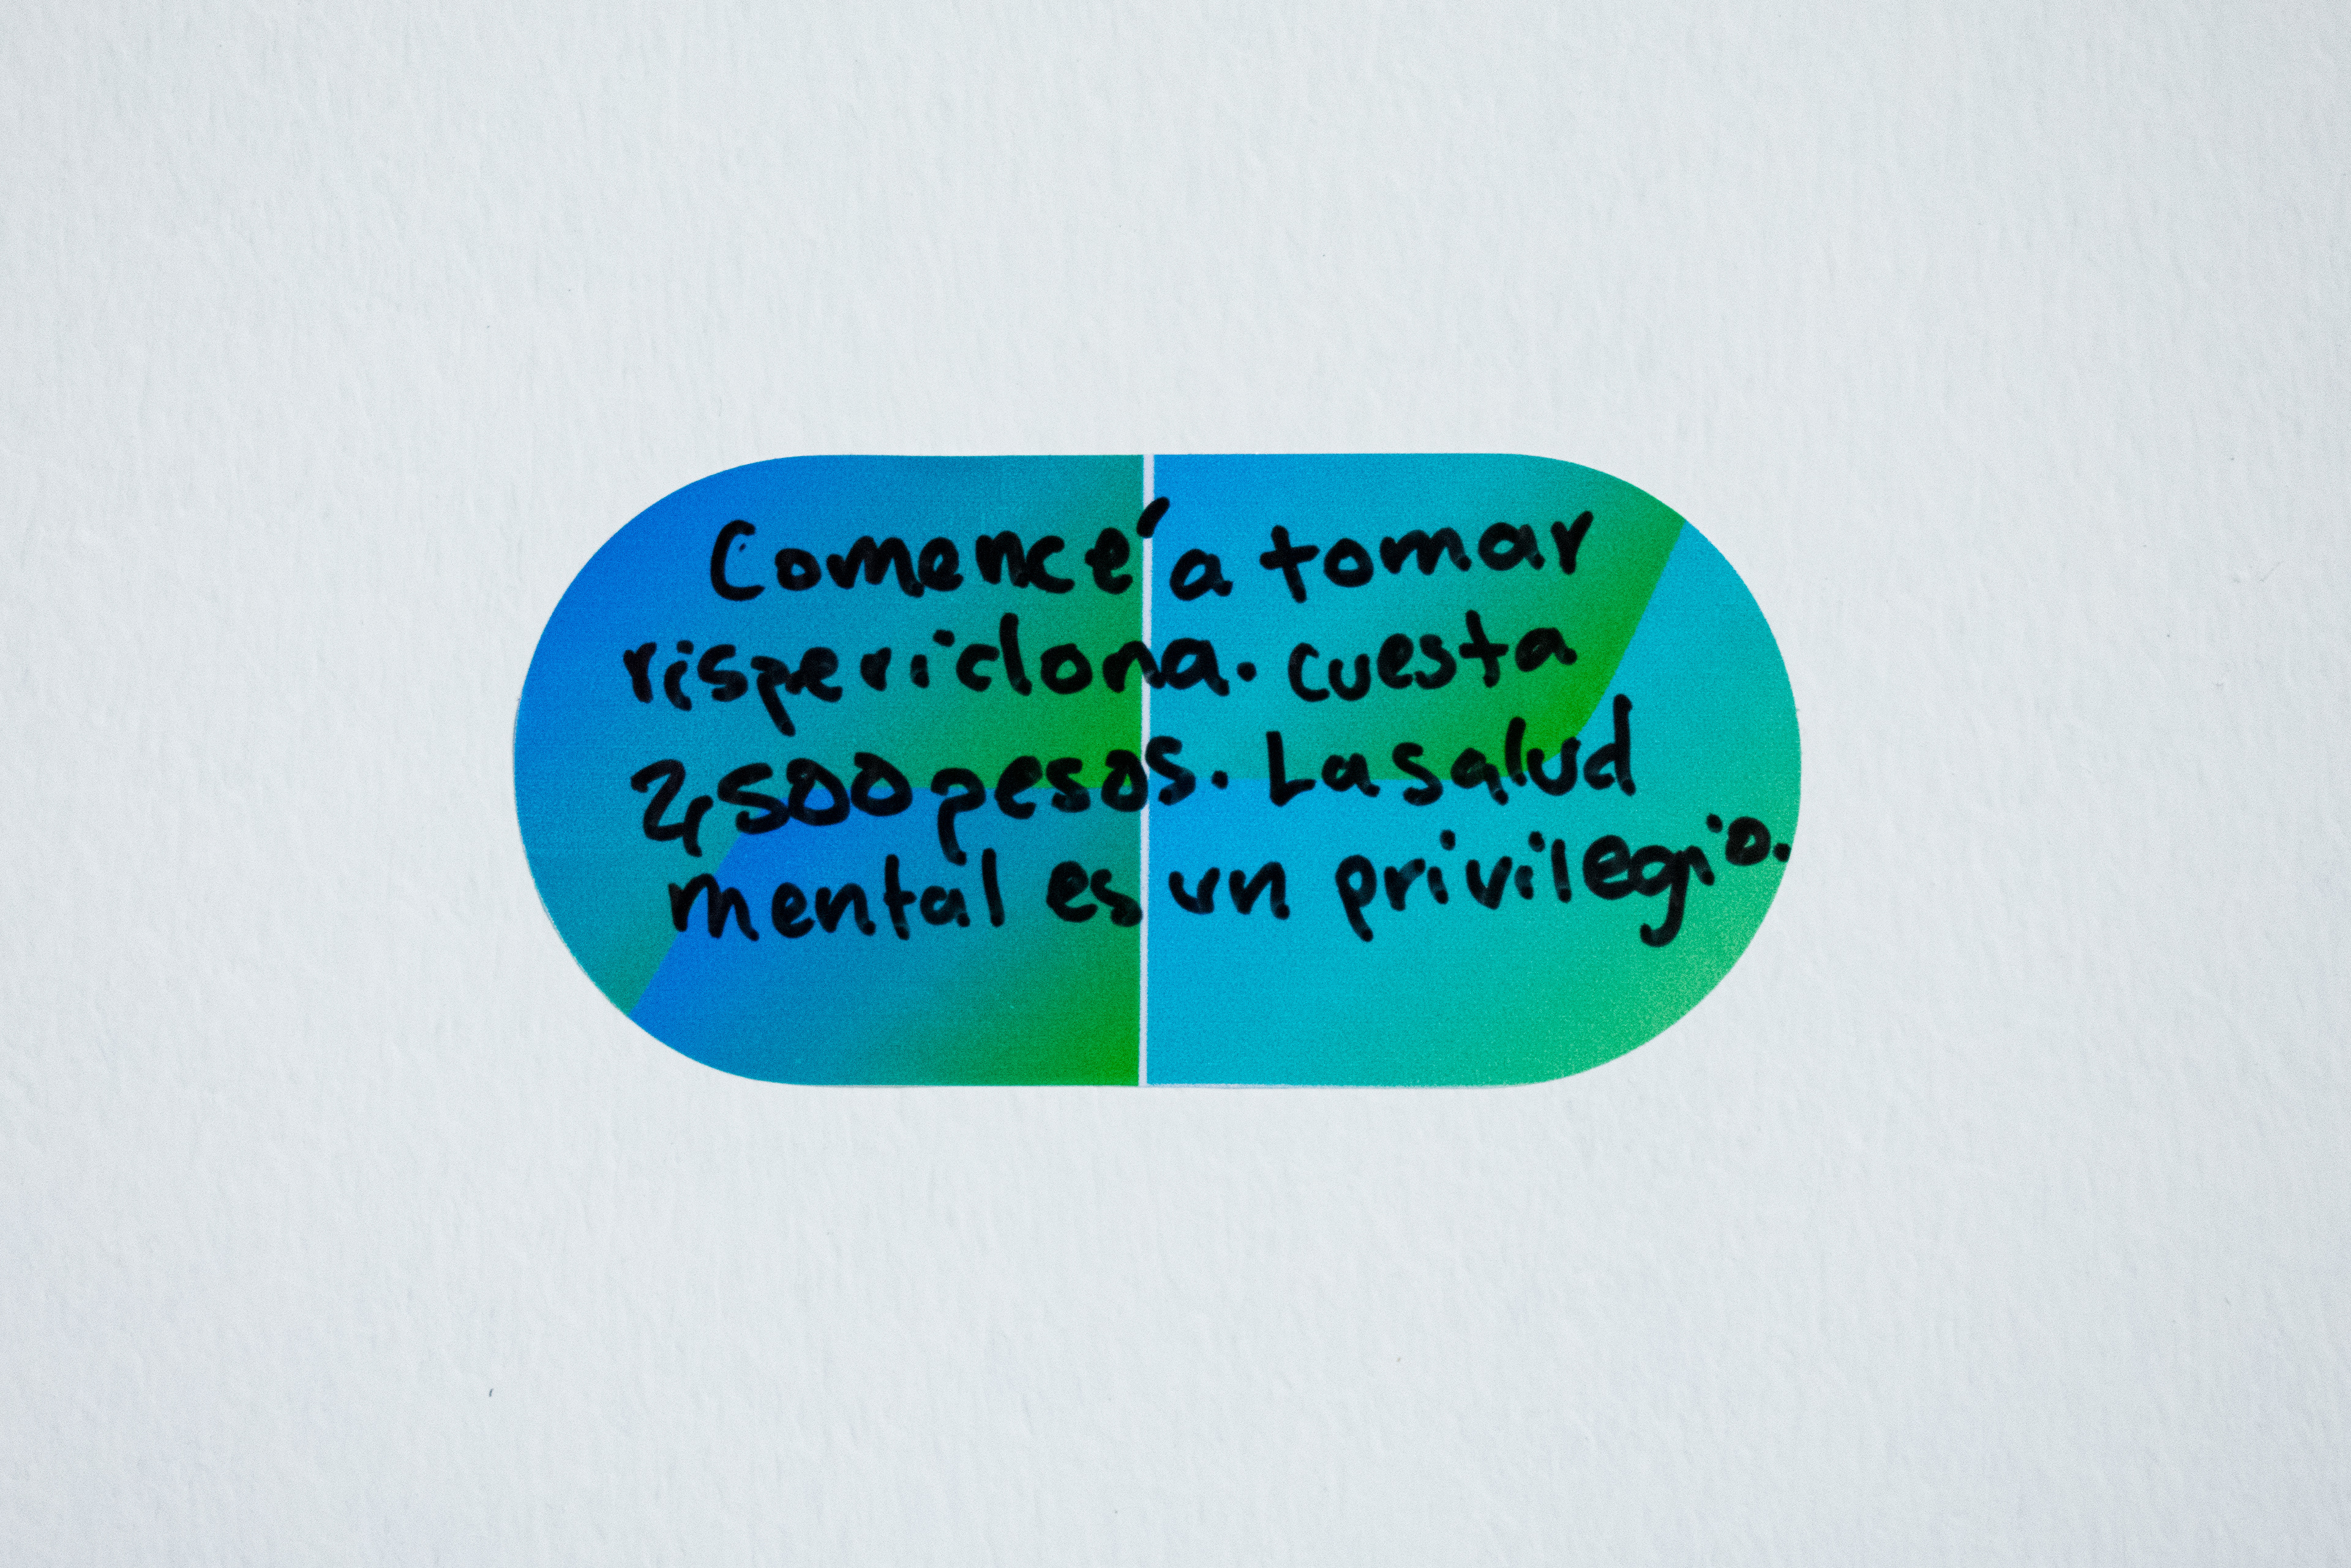 Comencé a tomar
risperidona. cuesta
2,500 pesos. La salud
mental es un privilegio.